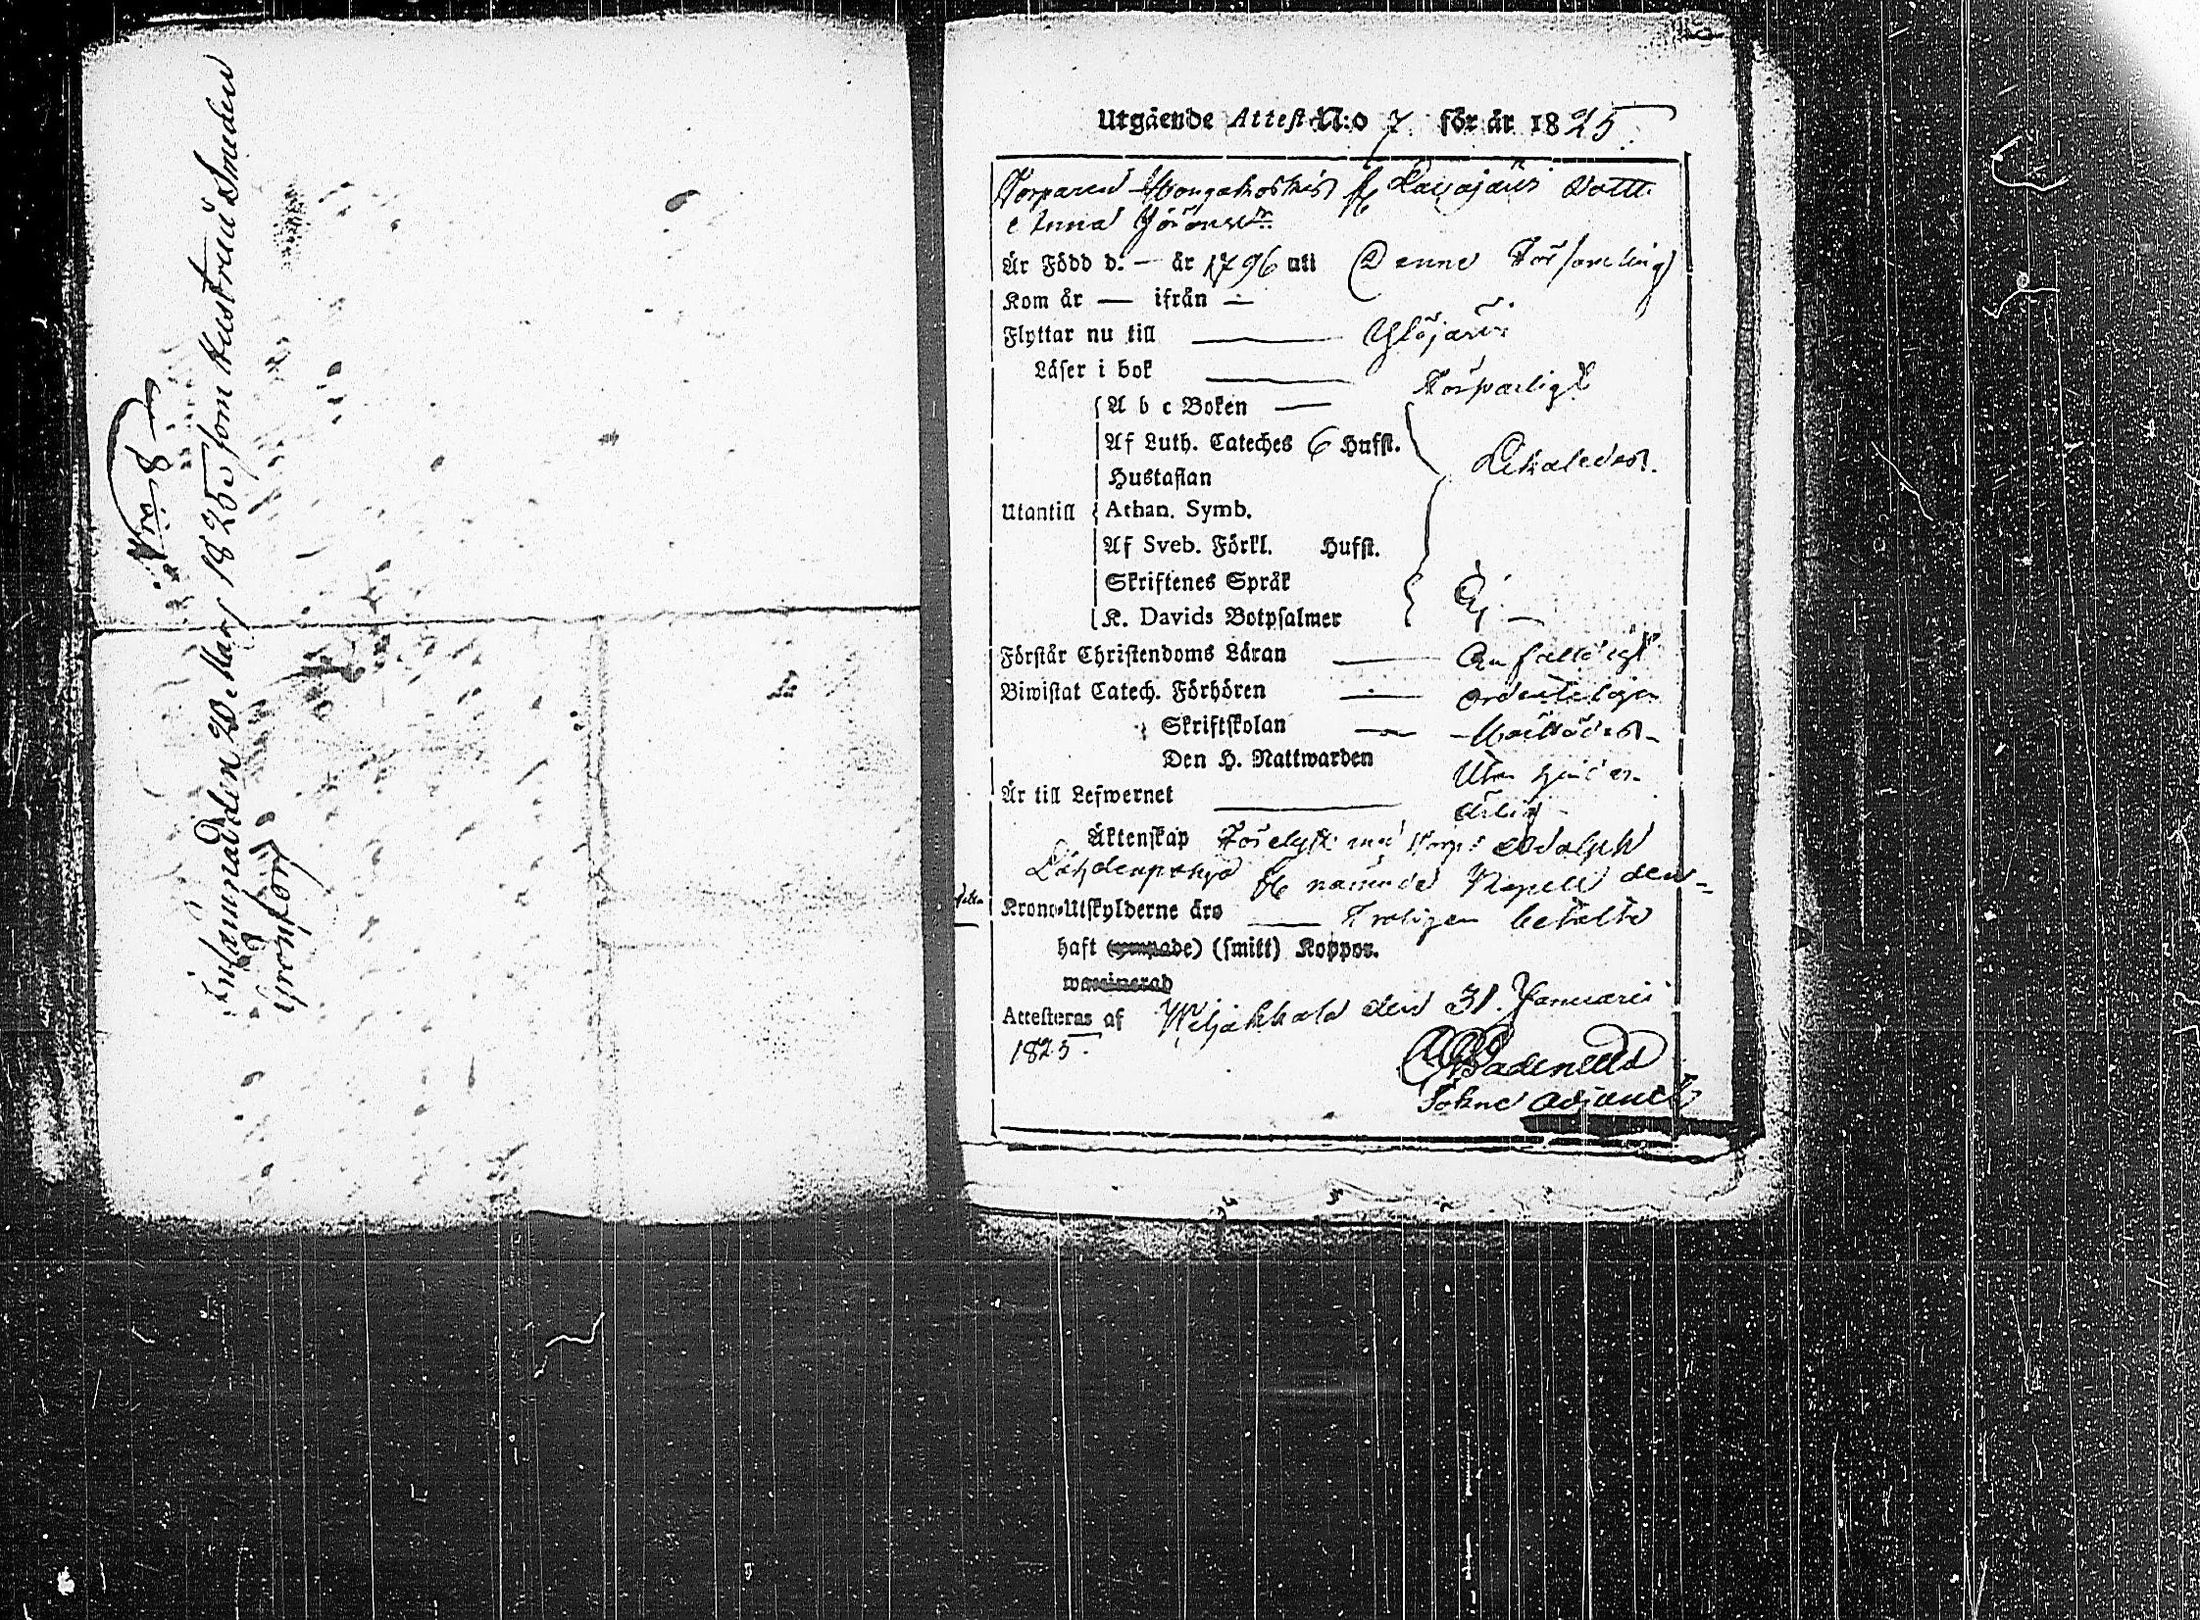 No 8
Inlämnad den 20 Mars 1825, som Hustru Smeden
Grönfors
Utgående Attest N:o 7 för år 1825.
Torparen fr Dotter
Anna Jöransdr
Är Född d. — år 1796 uti Denne Församling
Kom år — ifrån —
Flyttar nu till — Ylöjärvi
Läser i bok — Försvarligt
A b c Boken —
Af Luth. Cateches 6 Hufst.
Hustaflan
Utantill Athan. Symb.
Af Sveb. Förkl. Hufst.
Skriftenes Språk
Ej —
K. Davids Botpsalmer
Förstår Christendoms Läran — Enfaldigt
Biwistat Catech. Förhören — ordenteligen
Skriftskolan —
Den H. Nattwarden Utan hinder
Är till Lefwernet — ärlig
Äktenskap Förelyst med Adolph
nämnde Kapell den-
Krono-Utskylderne äro — Troligen betalte
haft (ympade) (smitt) Koppor.
waccinerad
Attesteras af den 31. Januarii
1825.
Sokne Adjunct